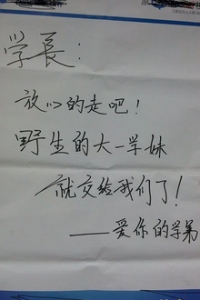 学長：
放心的走吧！
野生的大一学妹
就交给我们了！
——爱你的学弟